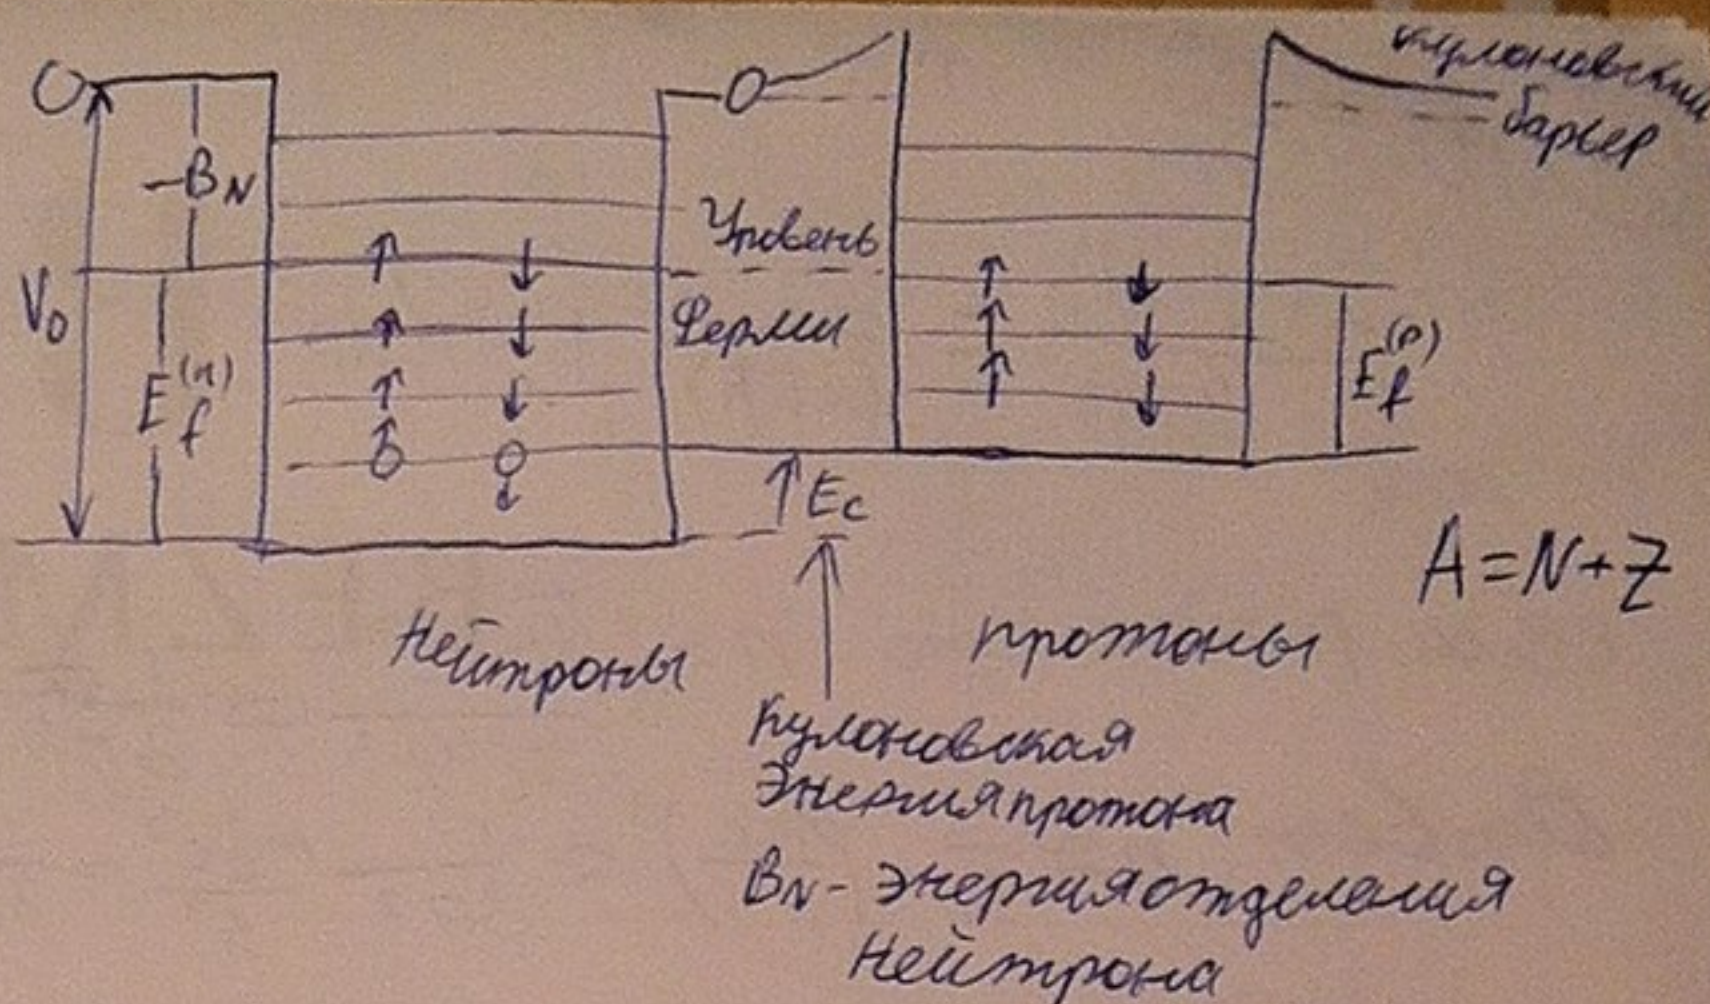 O
-B_N
V_0
E_f^(n)
O
Уровень
Ферми
E_c
Кулоновский
барьер
E_f^(p)
A=N+Z
Нейтроны
протоны
Кулоновская
Энергия протона
B_N - Энергия отделения
Нейтрона